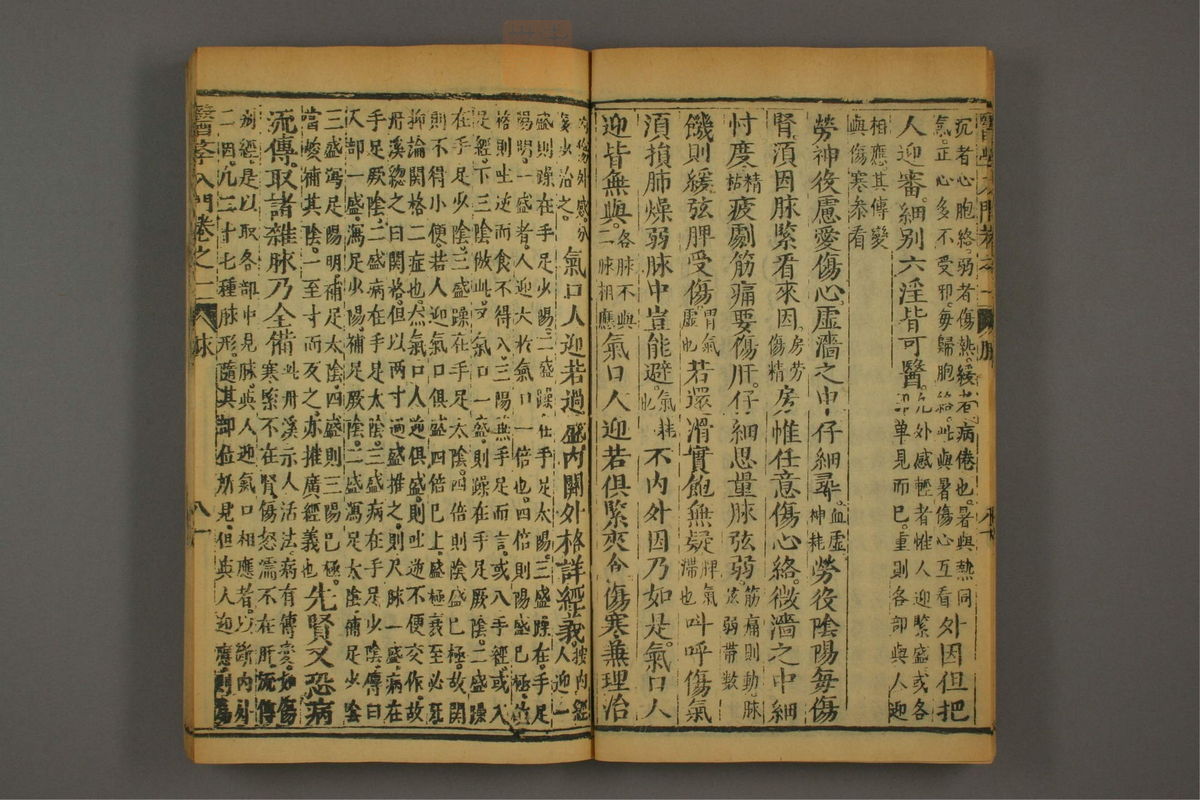 沉者心胞絡弱者傷熱緩者病倦也暑與熱同
氣正心多不受邪每歸胞絡此與暑傷心互看
外因但把
人迎審細別六淫皆可醫
凡外感輕者惟人迎緊盛或各
部單見而已重則各部與人迎
相應其傳變
與傷寒叅看
勞神役慮愛傷心虛濇之中仔細尋
血虛
神耗
勞役陰陽每傷
腎須因脉緊看來因
房劳
傷精
房帷任意傷心絡微濇之中細
忖度
精
枯
疲劇筋痛要傷肝仔細思量脉弦弱
筋痛則動脉
弦弱帶数
饑則緩弦脾受傷
胃氣
虛也
若還滑實飽無疑
脾氣
滯也
叫呼傷氣
須損肺燥弱脉中豈能避
氣耗
也
不內外因乃如是氣口人
迎皆無與
各脉不與
二脉相應
氣口人迎若俱緊夾食傷寒兼理治
內傷外感分
多少治之
氣口人迎若過盛內關外格詳經義
按內經
人迎一
盛則躁在手足少陽二盛躁在手足太陽三盛躁在手足
陽明一盛者人迎大於氣口一倍也四倍則陽已極故
格則吐逆而食不得入三陽無手足而言或入手經或入
足經下三陰倣此氣口一盛則躁在手足厥陰二盛躁
在手足少陰三盛躁在手足太陰四倍則陰盛已極故關
則不得小便若人迎氣口俱盛四倍已上盛極衰至必死
抑論関格二症也然氣口人迎俱盛則吐逆不便交作故
丹溪總之曰関格但以兩寸過盛推之則尺脉一盛病在
手足厥陰二盛病在手足太陰三盛病在手足少陰傳曰
人卸一盛瀉足少陽補足厥陰二盛瀉足太陰補足少陰
三盛瀉足陽明補足太陰四盛則三陽已極
當峻補其陰一至寸而反之亦推廣經義也
先賢又恐病
流傳取諸雜脉乃全備
此丹溪示人活法病有傳変如傷
寒緊不在腎傷怒濡不在肝流傳
別經是以取各部中見脉與人迎氣口相應者以断內外
二因凡二十七種脉形隨其部位所見但與人迎應則為
醫學入門卷之二 脉 八十一